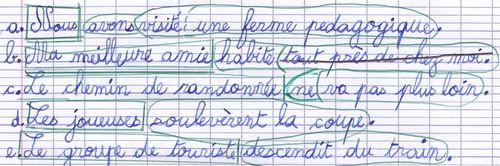 a. Nous avons visité une ferme pedagogique.
b. Ma meilleure amie habite tout près de chez moi.
c. Le chemin de randonnée ne va pas plus loin.
d. Les joueuses soulevèrent la coupe.
e. Le groupe de touriste descendit du train.